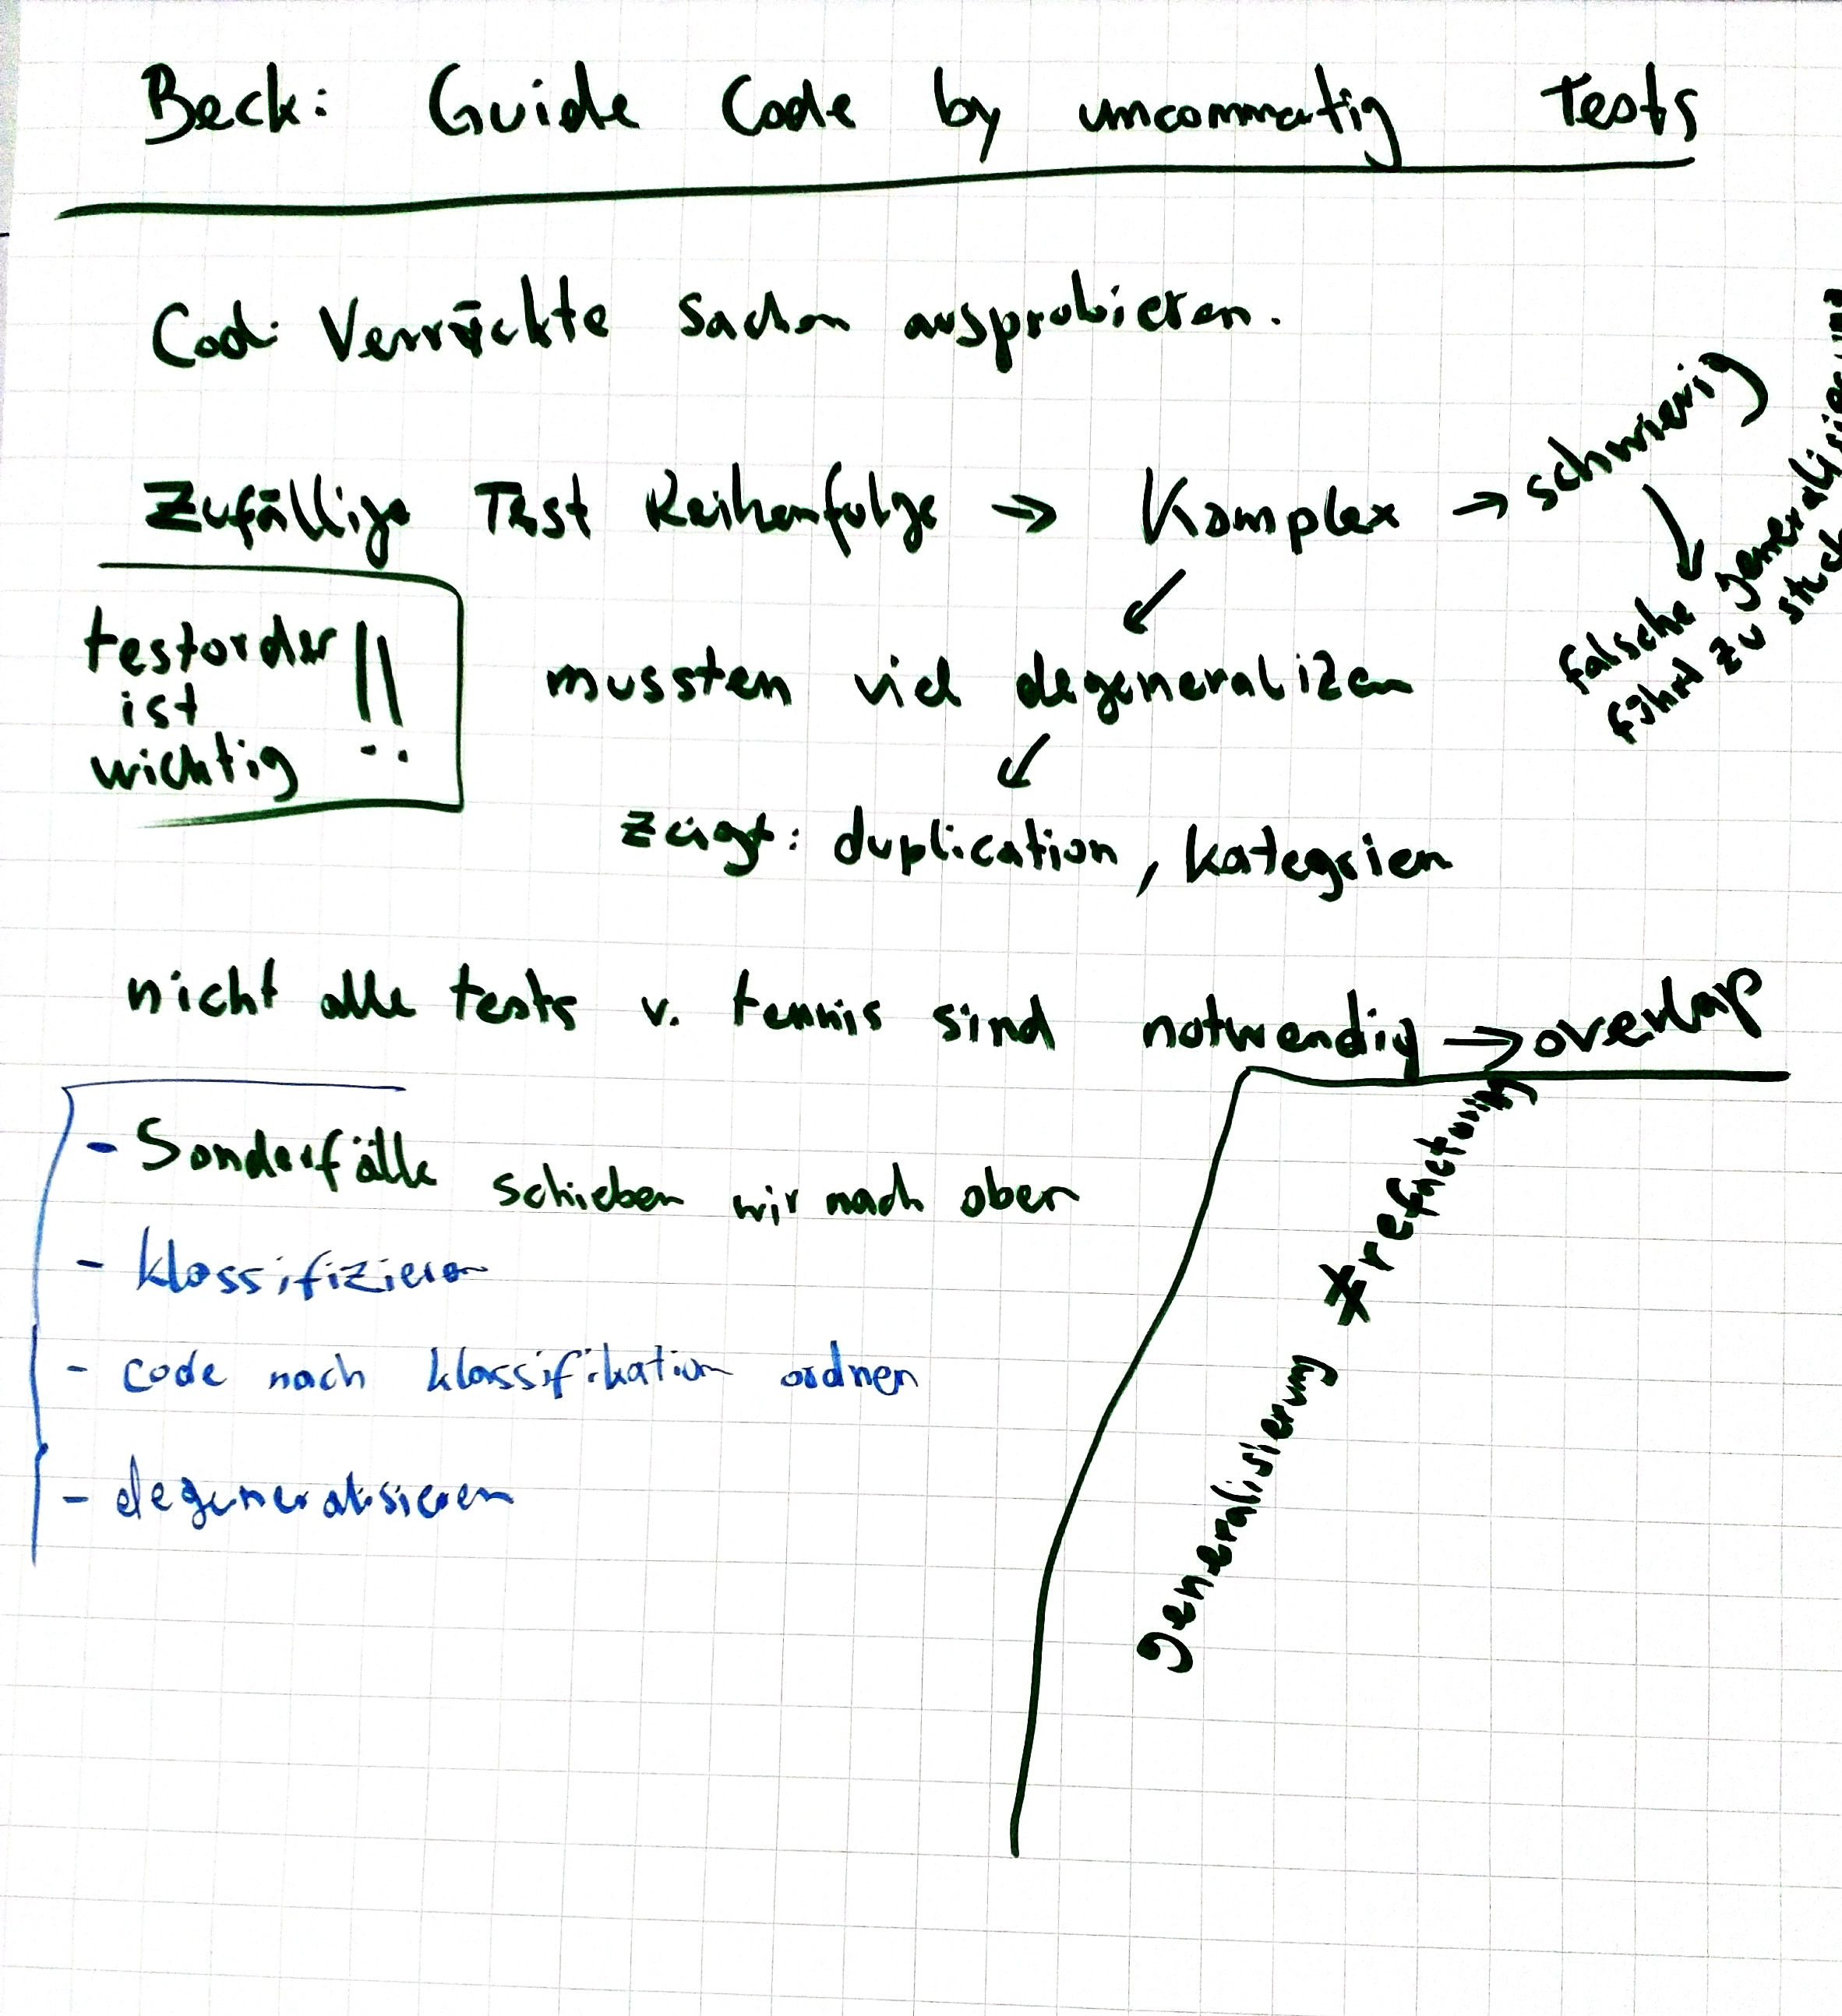 Beck: Guide Code by uncommatig Tests
Cod: Verrückte Sachen ausprobieren.
Zufällige Test Reihenfolge → Komplex → schwierig
falsche generalisierung
führt zu
testorder
ist
wichtig !!
mussten viel degeneralizen
zeigt: duplication, kategorien
nicht alle tests v. tennis sind notwendig → overlap
- Sonderfälle schieben wir nach oben
- klassifizieren
- code nach klassifikation ordnen
- degeneralisieren
generalisierung ≠ refactoring